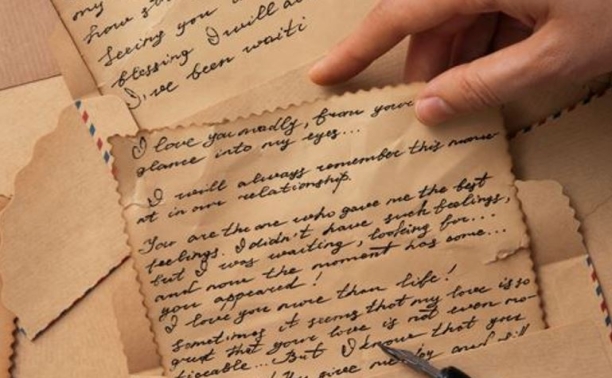 my
how s
Seeing you
blessing I will a
I've been waiti
I love you madly, from your
glance into my eyes...
I will always remember this mome
nt in our relationship.
You are the one who gave me the best
feelings. I didn't have such feelings,
but I was waiting, looking for...
and now the moment has come...
you appeared!
I love you more than life!
Sometimes it seems that my love is so
great that your love is not even no-
ticeable... But I know that you
give me joy and